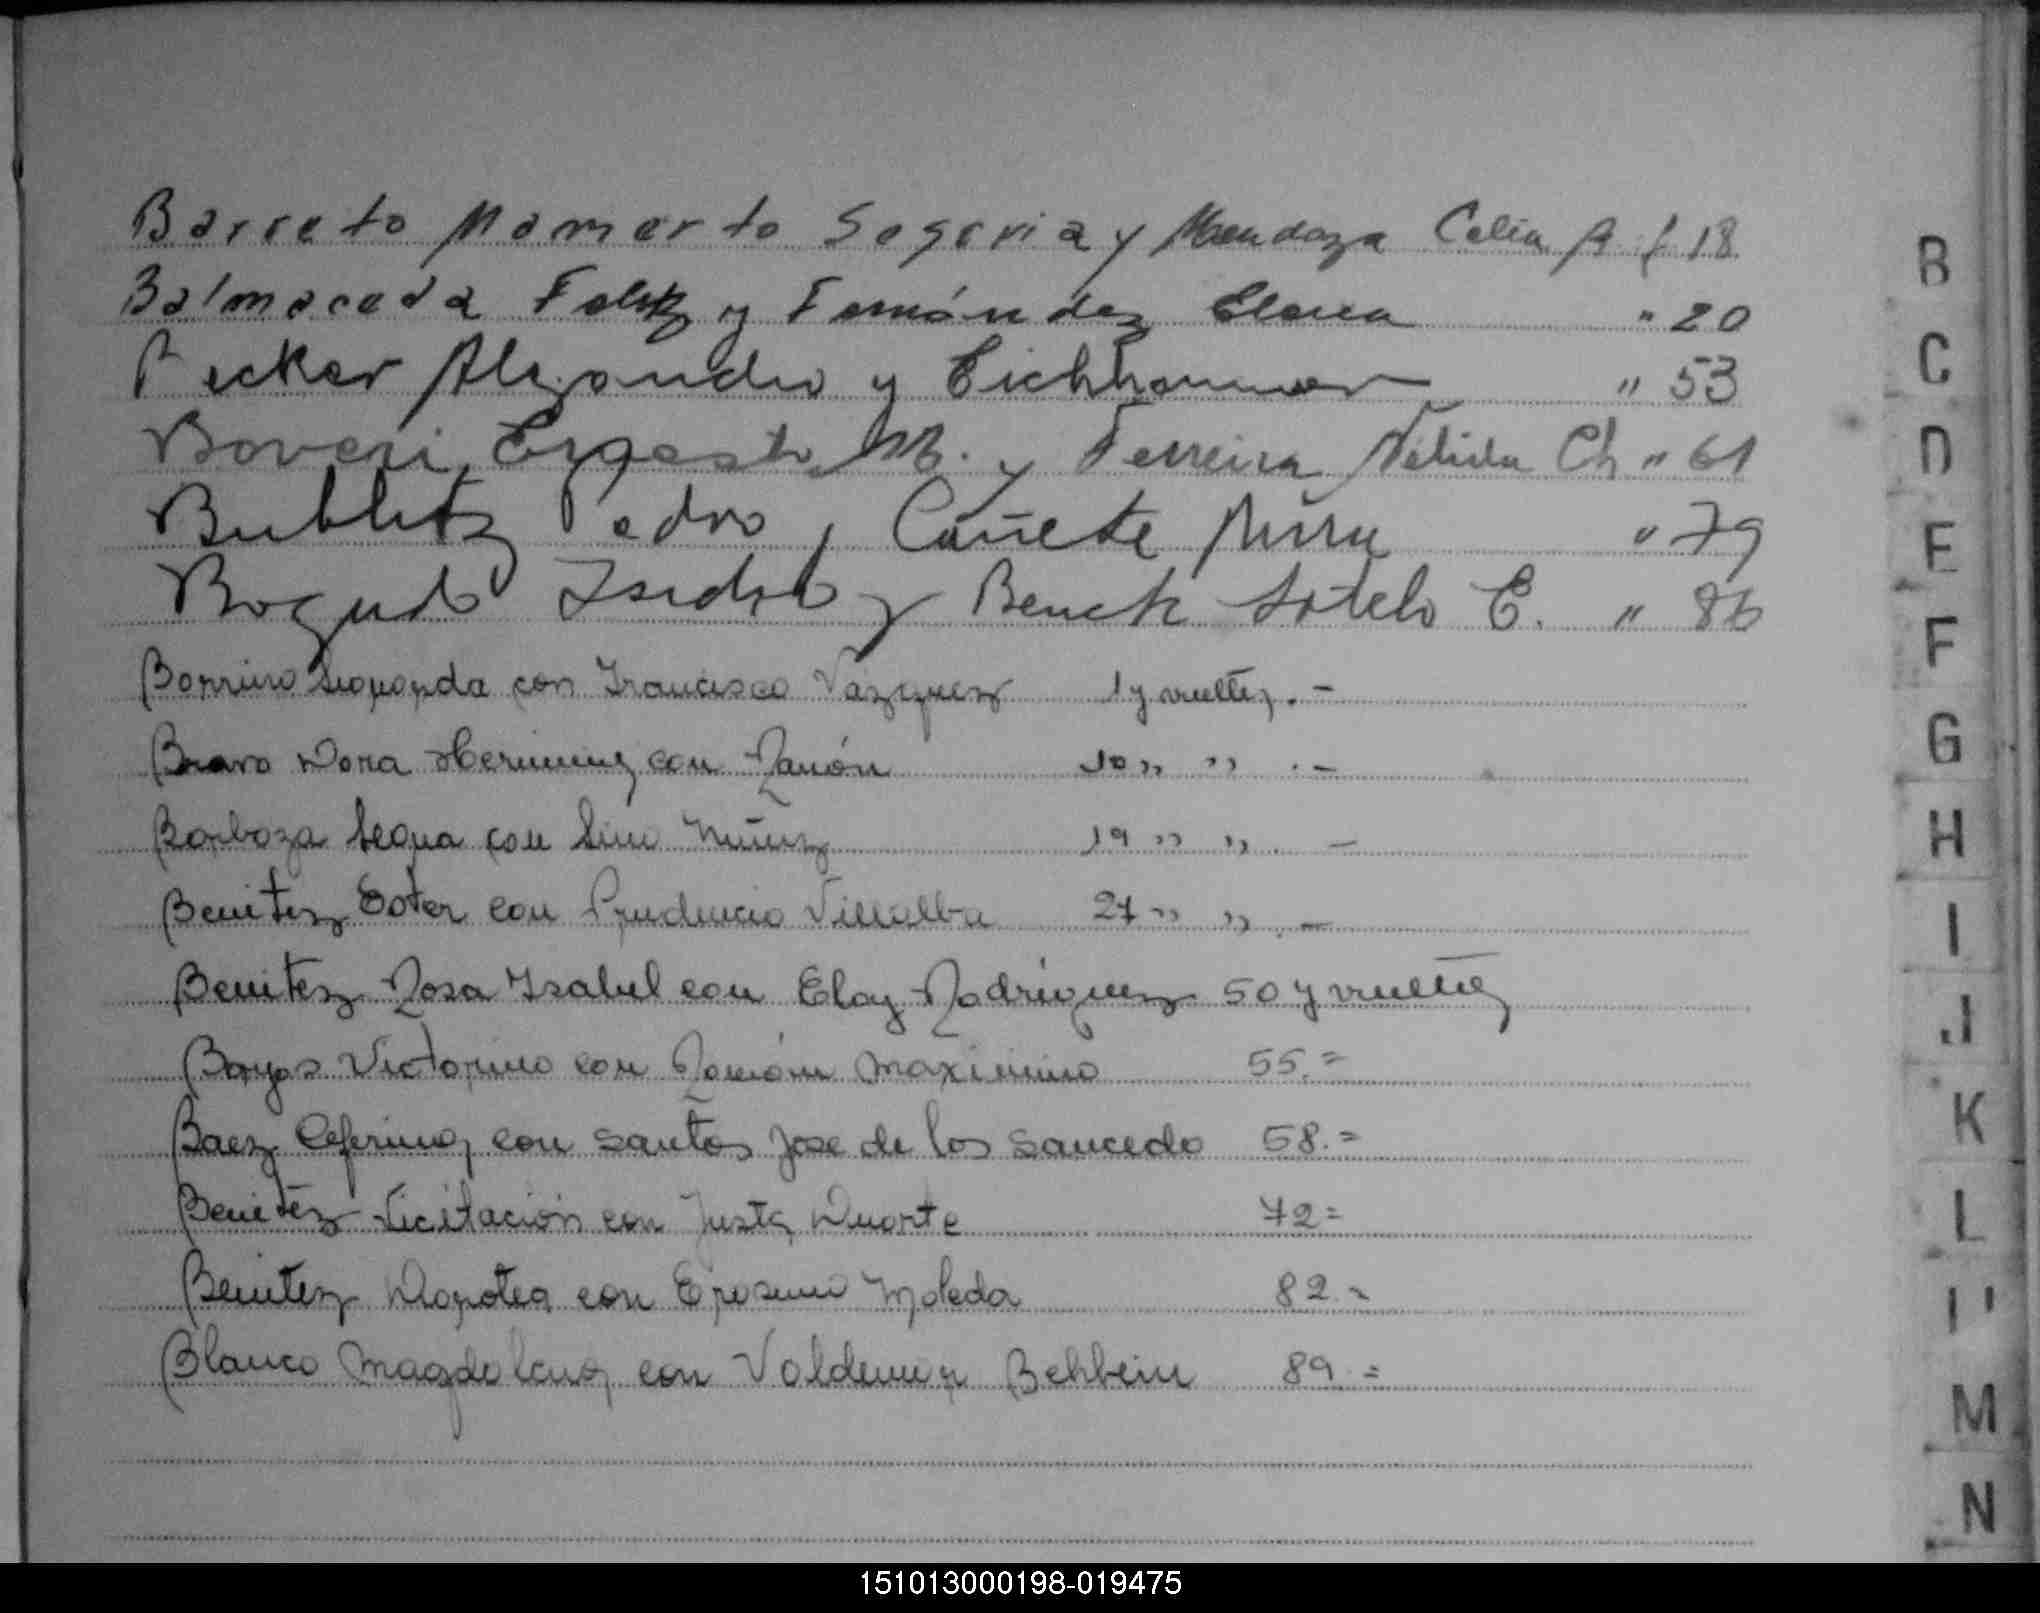 Barreto Mamerto Segovia y Mendoza Celia A f 18
Balmaceda Felix y Fernández Elena " 20
Becker Alejandro y Eichhammer " 53
Boveri, Ernesto M. y Ferreira Nélida Ch " 61
Bublitz Pedro y Cañete Mirta " 79
Bogado Isidro y Benck Sotelo E. " 86
Borrino con Francisco Vázquez 1 y vuelta. -
Bravo Dora con Ramón 10 " " . -
Barboza con Lino Núñez 19 " " . -
Benitez Ester con Prudencio Villalba 27 " " . -
Benitez Rosa Isabel con Eloy Rodríguez 50 y vuelta
Victorino con Ramón Maximino 55.=
Baez Ceferina con Santos Jose de los Saucedo 58.=
Benitez Licitación con Justa Duarte 72=
Benitez Dorotea con Erasmo 82.-
Blanco Magdalena con Valdemar Behbein 89.=
B
C
D
E
F
G
H
I
J
K
L
M
N
151013000198-019475